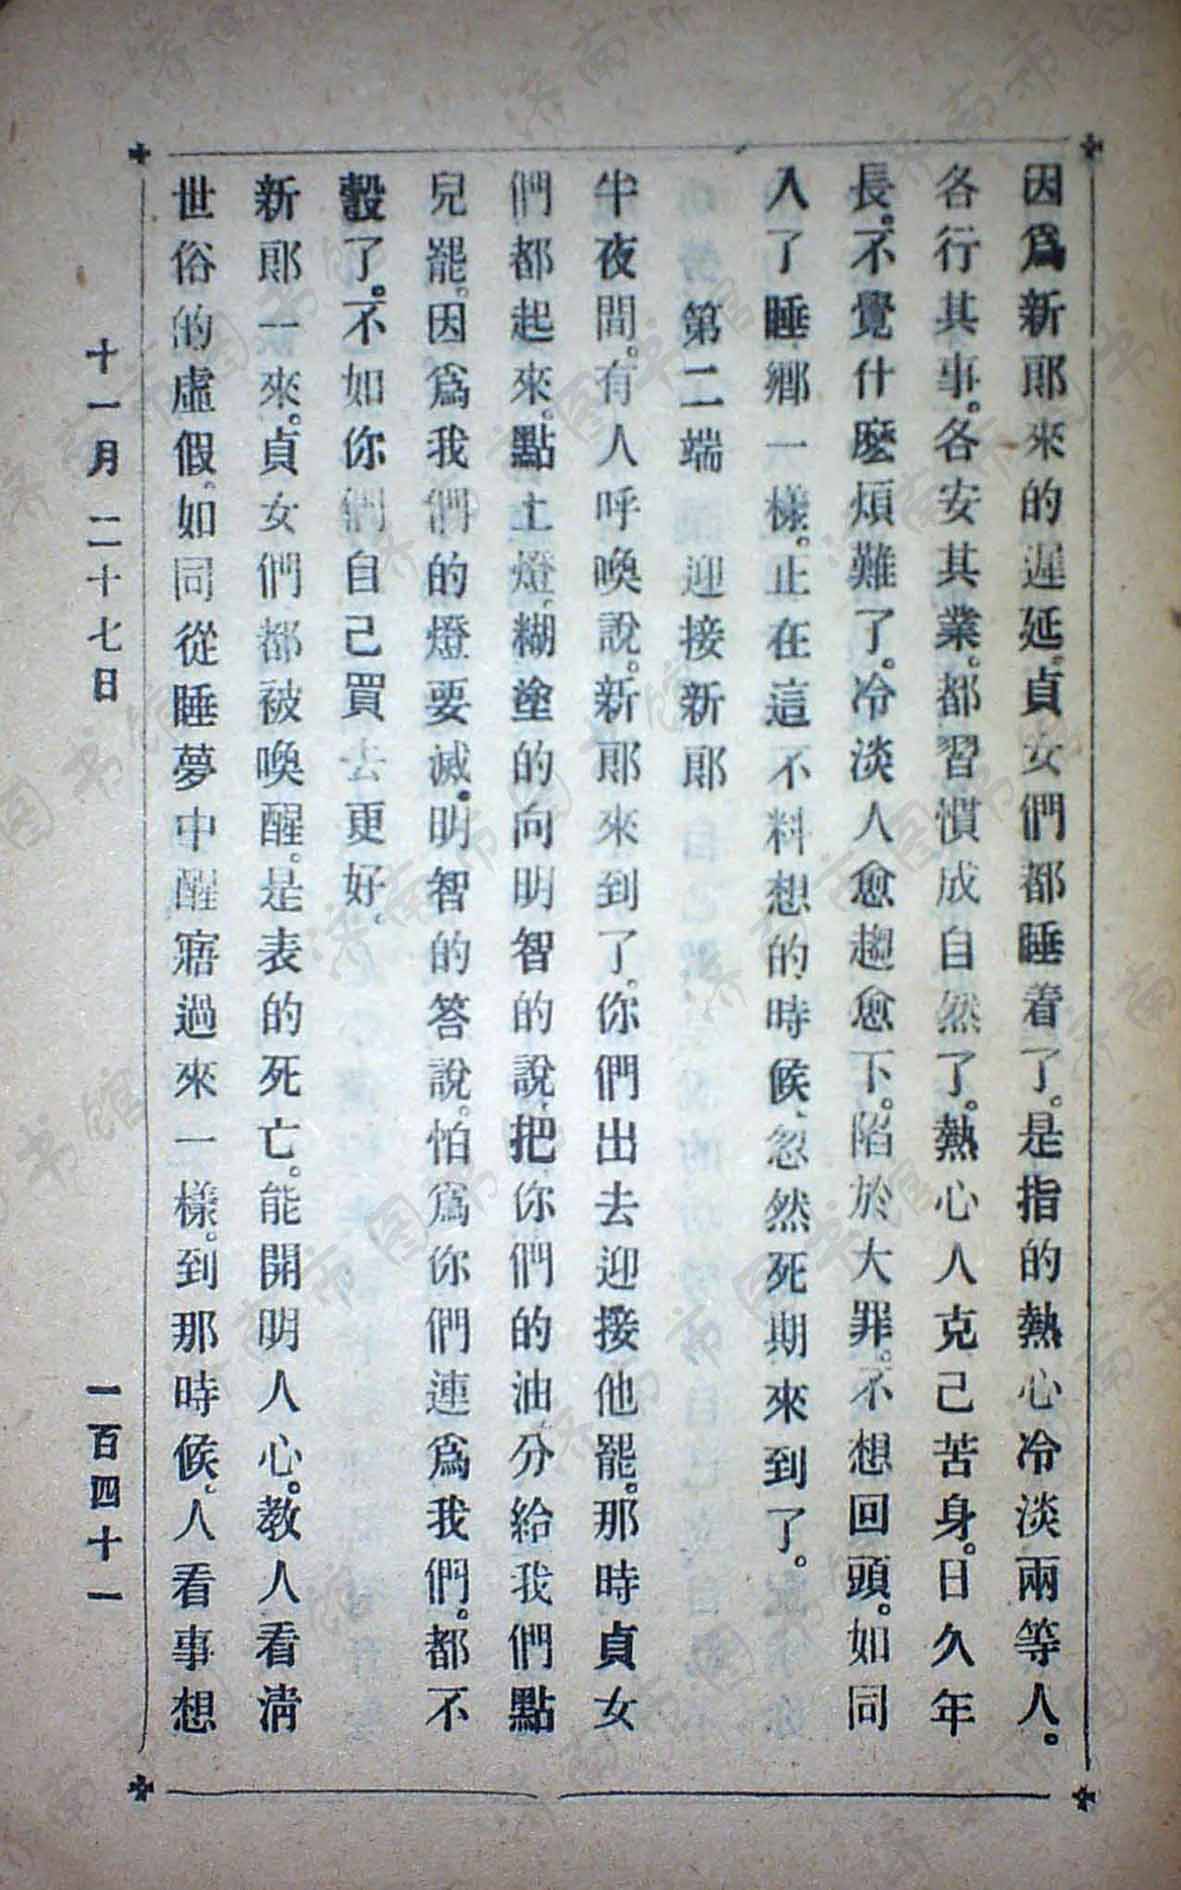 因爲新郞來的遲延。貞女們都睡着了。是指的熱心冷淡兩等人。
各行其事。各安其業。都習慣成自然了。熱心人克己苦身。日久年
長。不覺什麽煩難了。冷淡人愈趨愈下。陷於大罪。不想回頭。如同
入了睡鄕一樣。正在這不料想的時候、忽然死期來到了。
第二端 迎接新郞
半夜間。有人呼喚說。新郞來到了。你們出去迎接他罷。那時貞女
們都起來。點上燈。糊塗的向明智的說、把你們的油、分給我們點
兒罷。因爲我們的燈要滅。明智的答說。怕爲你們連爲我們。都不
彀了。不如你們自己買去更好。
新郞一來。貞女們都被喚醒。是表的死亡。能開明人心。教人看淸
世俗的虛假。如同從睡夢中醒寤過來一樣。到那時候、人看事想
十一月二十七日
一百四十一
济南市图书馆